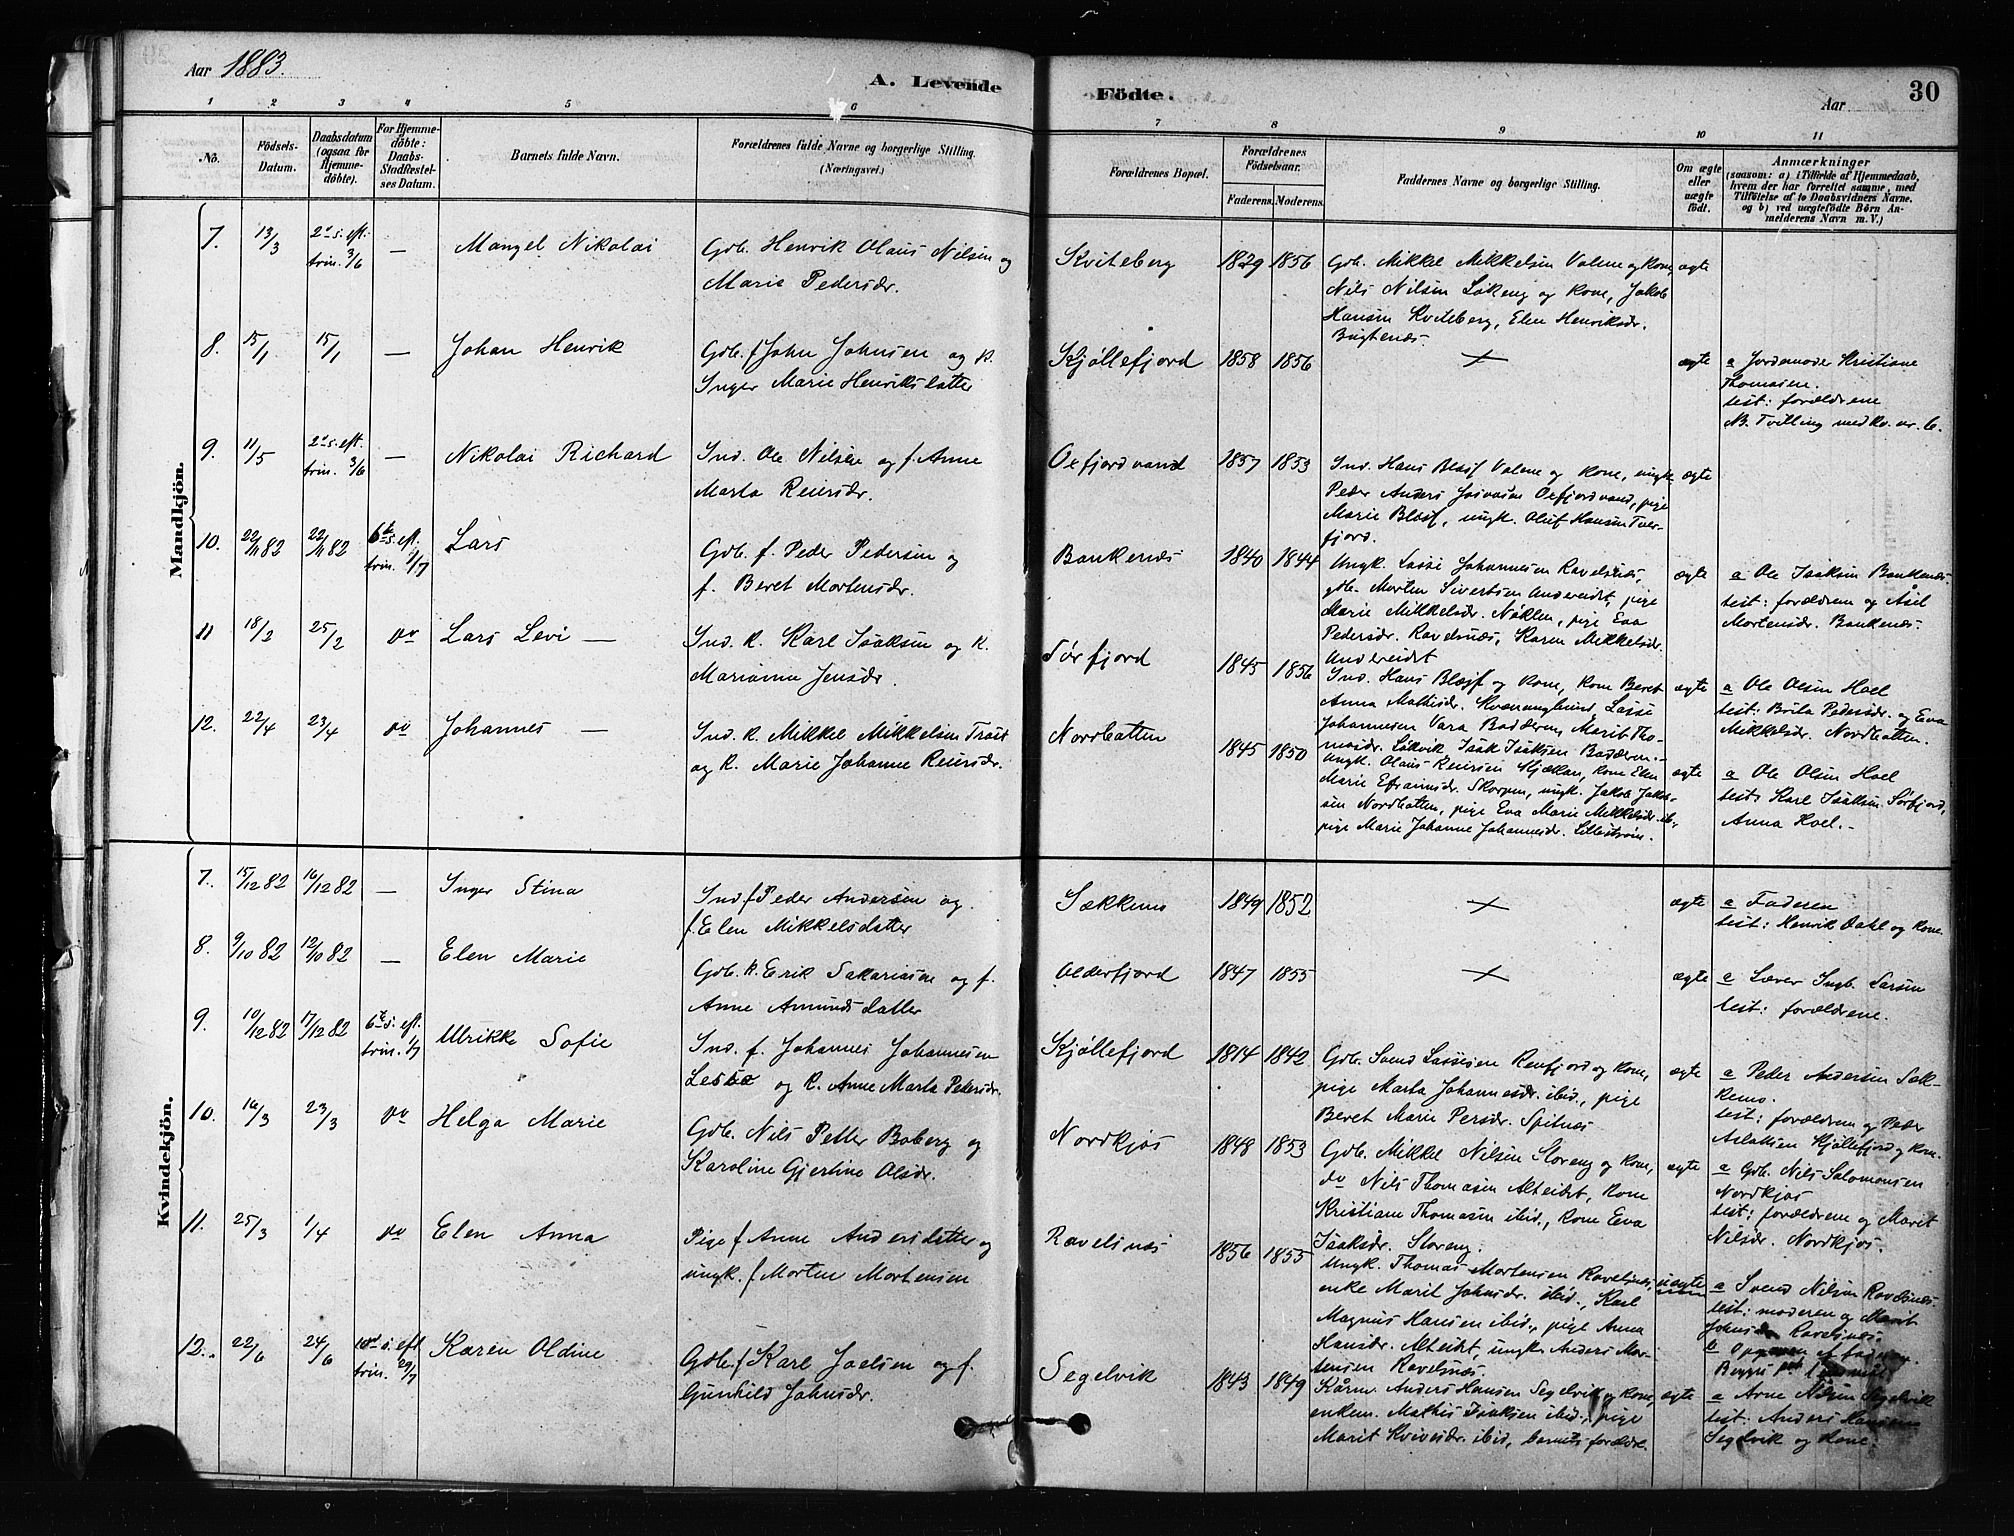 Aar 1883.
A. Levende
Födte.
Aar
30
1 2 3 4 5 6 7 8 9 10 11
No.
Födsels-
Datum.
Daabsdatum
(ogsaa for
Hjemme-
döbte).
For Hjemme-
döbte:
Daabs-
Stadfæstel-
ses Datum.
Barnets fulde Navn.
Forældrenes fulde Navne og borgerlige Stilling.
(Næringsvei.)
Forældrenes Bopæl.
Forældrenes
Födselsaar.
Faderens. Moderens.
Faddernes Navne og borgerlige Stilling.
Om ægte
eller
uægte
födt.
Anmærkninger
(saasom: a) i Tilfælde af Hjemmedaab,
hvem der har forrettet samme, med
Tilföielse af to Daabsvidners Navne.
og b) ved uægtefödte Börn An-
melderens Navn m. V.)
Mandkjön.
7. 13/3 2d s. eft. trin. 3/6 — Mangel Nikolai
Gdb. Henrik Olaus Nilsen og
Marie Pedersdr.
Kviteberg 1829 1856
Gdb. Mikkel Mikkelsen Valene og kone,
Nils Nilsen Løkeng og kone, Jakob
Hansen Kviteberg, Elen Henriksdr.
Bugtenæs.
ægte
8. 15/1 15/1 — Johan Henrik
Gdb. f. John Johnsen og k.
Inger Marie Henriksdatter
Kjøllefjord 1858 1856 + ægte
a Jordemoder Kristiane
Thomasen.
test: forældrene
NB. Tvilling med kv. nr. 6.
9. 11/5 2d s. eft. trin. 3/6 — Nikolai Richard
Ind. Ole Nilsen og f. Anne
Marta Reiersdr.
Oxfjordvand 1857 1853
Ind. Hans Blæsf Valene og kone, ungk.
Peder Anders Josvasen Oxfjordvand, pige
Marie Blæsf, ungk. Oluf Hansen Tver-
fjord.
ægte
10. 22/11 82 22/11 82 6te s. eft. trin. 1/7 Lars
Gdb. f. Peder Pedersen og
f. Beret Mortensdr.
Bankenæs 1840 1844
Ungk. Lasse Johannesen Ravelsnæs,
gdb. Morten Sivertsen Andereidet, pige
Marie Mikkelsdr. Nøklen, pige Eva
Pedersdr. Ravelsnæs, Karen Mikkelsdr.
Undereidet
ægte
a Ole Isaksen Bankenæs.
test: forældrene og Asel
Mortensdr. Bankenæs.
11 18/2 25/2 do Lars Levi —
Ind. k. Karl Isaksen og k.
Marianne Jensdr.
Sørfjord 1845 1856
Ind. Hans Blæsf og kone, kone Beret
Anna Mathisdr. Kvænanglund, Lasse
Johannesen Vara Badderen, Marit Tho-
masdr. Løkvik, Isak Isaksen Badderen.
ægte
a Ole Olsen Hoel
test: Brita Pedersdr. og Eva
Mikkelsdr. Nordbotten.
12. 22/4 23/4 do Johannes —
Ind. k. Mikkel Mikkelsen Trast
og k. Marie Johanne Reiersdr.
Nordbotten 1845 1850
Ungk. Olaus Reiersen Kjækan, kone Elen
Marie Efraimsdr. Skorpen, ungk. Jakob Jakob-
sen Nordbotten, pige Eva Marie Mikkelsdr. ib.,
pige Marie Johanne Johannesdr. Lillestrøm.
ægte
a Ole Olsen Hoel
test: Karl Isaksen Sørfjord,
Anna Hoel.
Kvindekjön.
7. 15/12 82 16/12 82 — Inger Stina
Ind f Peder Andersen og
f. Elen Mikkelsdatter
Sækkemo 1849 1852 + ægte
a Faderen
test: Henrik Dahl og kone.
8. 9/10 82 12/10 82 — Elen Marie
Gdb. k. Erik Sakariasen og f.
Anne Amundsdatter
Olderfjord 1847 1855 + ægte
a Lærer Ingb. Larsen
test: forældrene.
9. 10/12 82 17/12 82 6te s. eft. trin. 1/7 Ulrikke Sofie
Ind. f. Johannes Johannesen
og k. Anne Marta Pedersdr.
Kjøllefjord 1814 1842
Gdb. Svend Lassesen Renfjord og kone,
pige Marta Johannesdr. ibid., pige
Beret Marie Persdr. Spitnæs
ægte
a Peder Andersen Sæk-
kemo.
test: forældrene og Peder
Aslaksen Kjøllefjord og kone.
10. 16/3 23/3 do Helga Marie
Gdb. Nils Petter Boberg og
Karoline Gjertine Olsdr.
Nordkjos 1848 1853
Gdb. Mikkel Nilsen Storeng og kone,
do Nils Thomasen Alteidet, kone
Kristiane Thomasen ibid., kone Eva
Isaksdr. Storeng.
ægte
a Gdb. Nils Salomonsen
Nordkjos
test: forældrene og Marit
Nilsdr. Nordkjos.
11. 25/3 1/4 do Elen Anna
Pige f Anne Andersdatter og
ungk. f Morten Mortensen
Ravelsnæs 1856 1855
Ungk. Thomas Mortensen Ravelsnæs,
enke Marit Johnsdr. ibid., Karl
Magnus Hansen ibid., pige Anna
Hansdr. Alteidet, ungk. Anders Mor-
tensen Ravelsnæs.
uægte
a Svend Nilsen Ravelsnæs.
test: moderen og Marit
Johnsdr. Ravelsnæs.
12. 22/6 24/6 10de s. eft trin. 29/7 Karen Oldine
Gdb. f Karl Joelsen og f.
Gunhild Johnsdr.
Segelvik 1843 1849
Kårm. Anders Hansen Segelvik og kone,
enkem. Mathis Isaksen ibid., pige
Marit Kvivesdr. ibid, barnets forældre.
ægte
a Arne Nilsen Segelvik
test: Anders Hansen
Segelvik og kone.